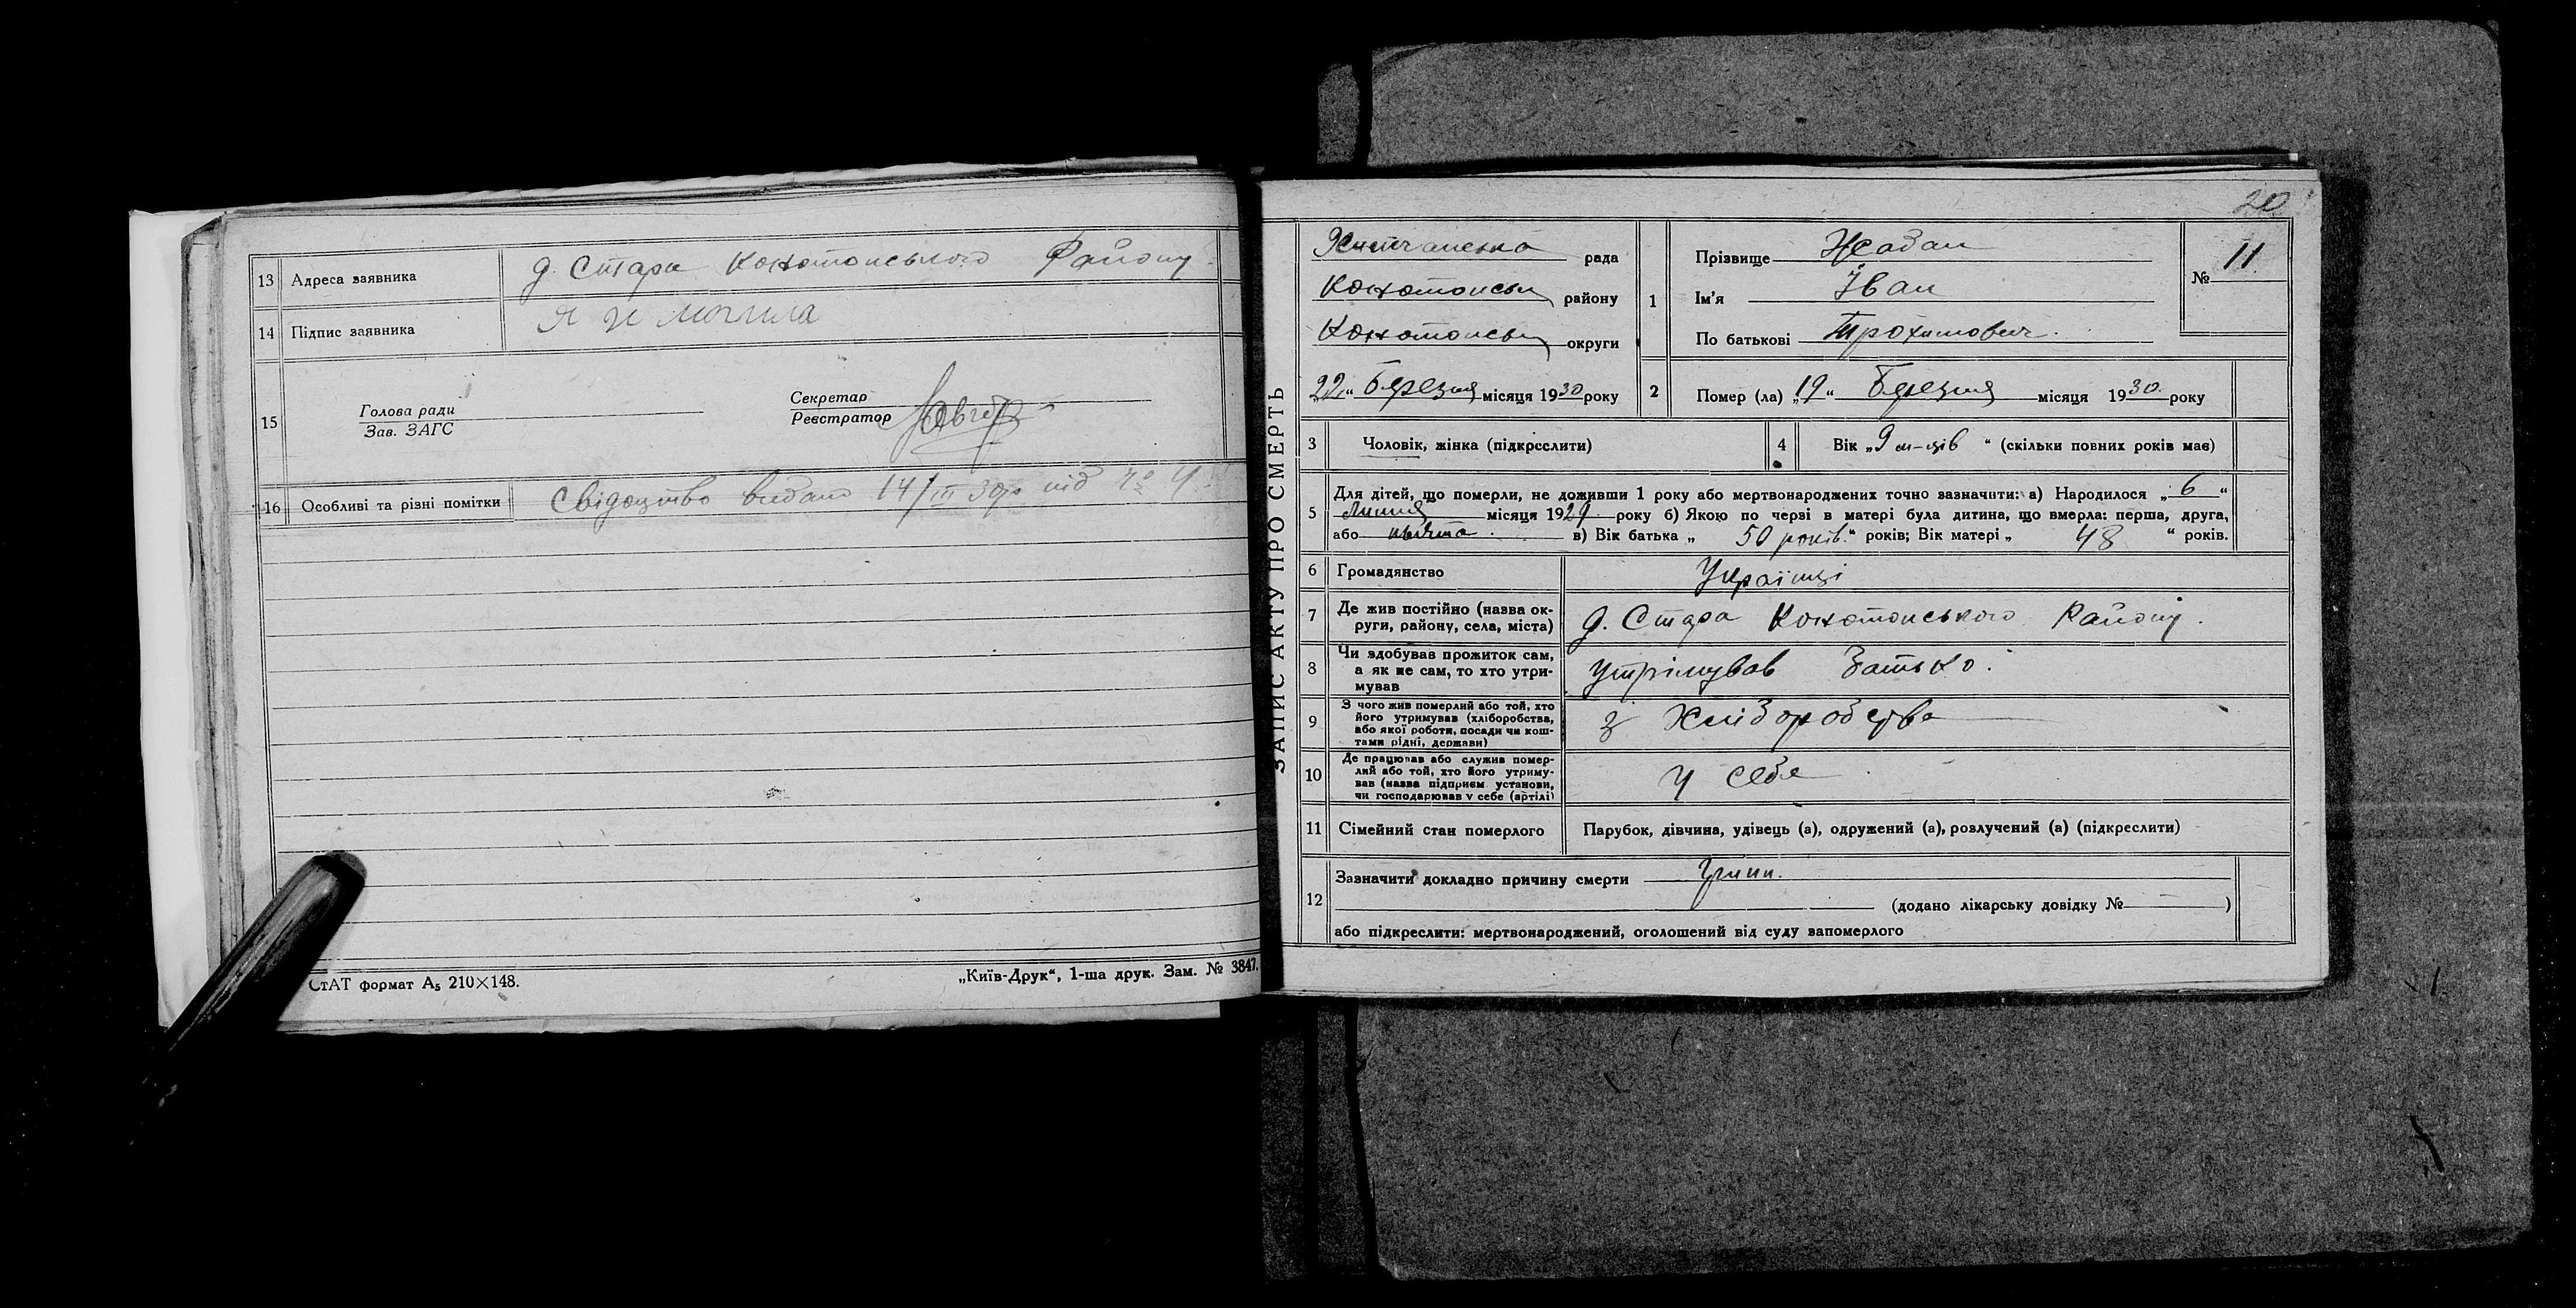 13 Адреса заявника д. Стара Конотопського Району.
14 Підпис заявника Я И Могила
15 Голова ради Секретар
Зав. ЗАГС Реєстратор
16 Особливі та різні помітки Свідоцтво видано 14/III 30р під № 4.
СтАТ формат А₅ 210×148.
„Київ-Друк“, 1-ша друк. Зам. № 3847.
ЗАПИС АКТУ ПРО СМЕРТЬ
20
рада
Конотопськ району
Конотопськ округи
„22“ Березня місяця 1930 року
1 Прізвище Жадан
Ім'я Іван
По батькові Трохимович.
№ 11
2 Помер (ла) „19“ Березня місяця 1930 року
3 Чоловік, жінка (підкреслити)
4 Вік „9 м-ців“ (скільки повних років має)
5 Для дітей, що померли, не доживши 1 року або мертвонароджених точно зазначити: а) Народилося „6“
Липня місяця 1929 року б) Якою по черзі в матері була дитина, що вмерла: перша, друга,
або пьята. в) Вік батька „50 років.“ років; Вік матері „48“ років.
6 Громадянство Українці
7 Де жив постійно (назва ок-
руги, району, села, міста) д. Стара Конотопського Району.
8 Чи здобував прожиток сам,
а як не сам, то хто утри-
мував Утрімував батько.
9 З чого жив померлий або той, хто
його утримував (хліборобства,
або якої роботи, посади чи кош-
тами рідні, держави) з Хліборобства
10 Де працював або служив помер-
лий або той, хто його утриму-
вав (назва підприєм. установи,
чи господарював у себе (артілі) У себе
11 Сімейний стан померлого Парубок, дівчина, удівець (а), одружений (а), розлучений (а) (підкреслити)
12 Зазначити докладно причину смерти Грипп.
(додано лікарську довідку № )
або підкреслити: мертвонароджений, оголошений від суду запомерлого